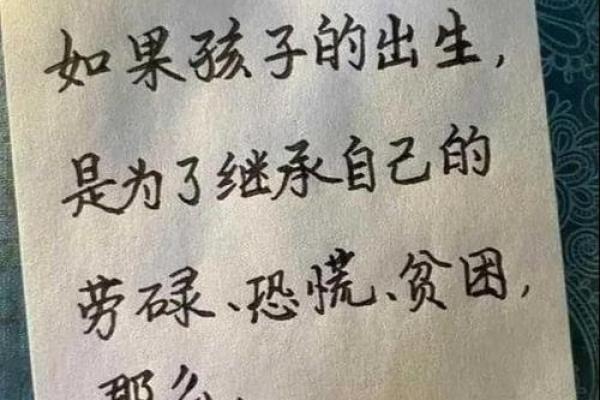 如果孩子的出生,
是为了继承自己的
劳碌、恐慌、贫困,
那么,